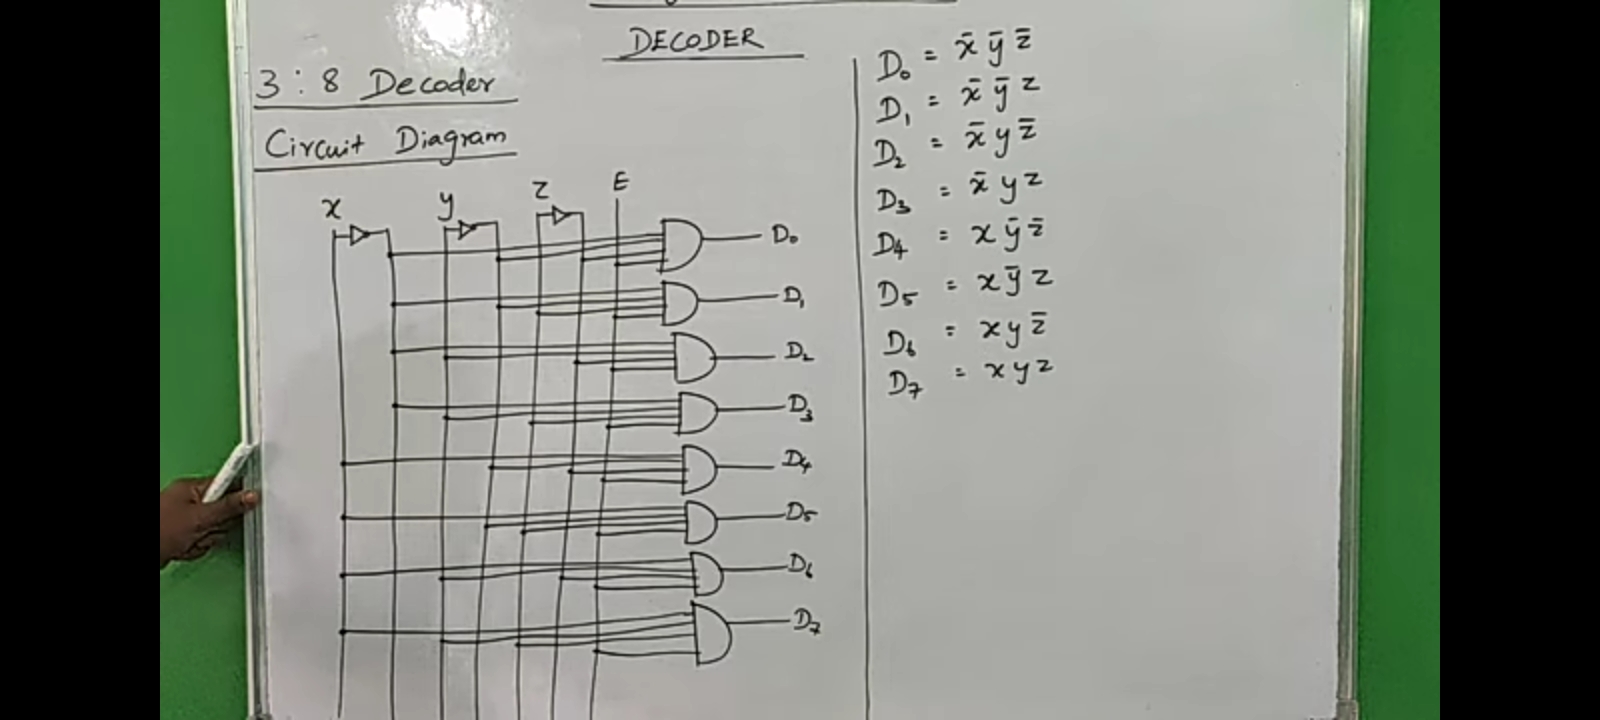 DECODER
3 : 8 Decoder
Circuit Diagram
x y z E
D₀
D₁
D₂
D₃
D₄
D₅
D₆
D₇
D₀ = x̄ ȳ z̄
D₁ = x̄ ȳ z
D₂ = x̄ y z̄
D₃ = x̄ y z
D₄ = x ȳ z̄
D₅ = x ȳ z
D₆ = x y z̄
D₇ = x y z